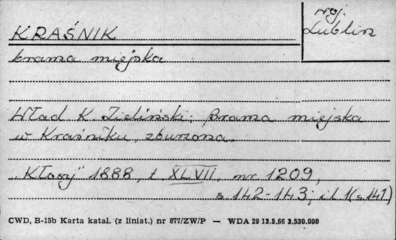 KRAŚNIK
woj. Lublin
brama miejska
Wład K. Zieliński: Brama miejska
w Kraśniku, zburzona.
"Kłosy" 1888, t XLVII, nr 1209,
s 142-143; il 1 (s 141)
CWD, B-15b Karta katal. (z liniat.) nr 877/ZW/P — WDA 29 13.2.66 3.530.000